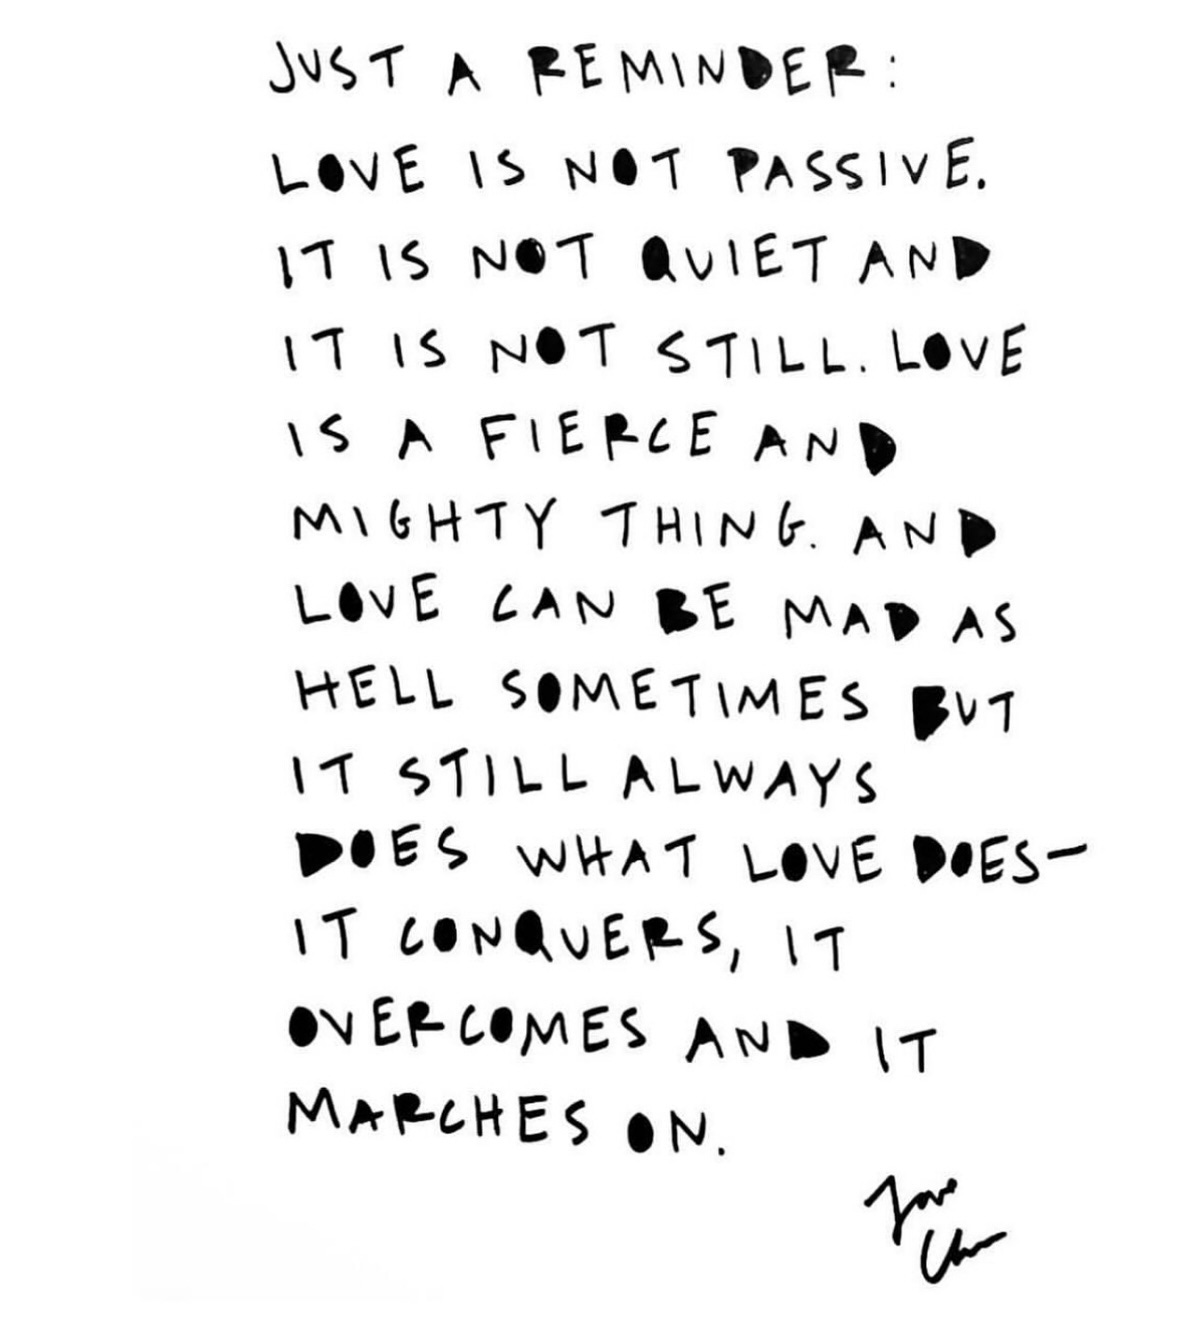 JUST A REMINDER:
LOVE IS NOT PASSIVE.
IT IS NOT QUIET AND
IT IS NOT STILL. LOVE
IS A FIERCE AND
MIGHTY THING. AND
LOVE CAN BE MAD AS
HELL SOMETIMES BUT
IT STILL ALWAYS
DOES WHAT LOVE DOES—
IT CONQUERS, IT
OVERCOMES AND IT
MARCHES ON.